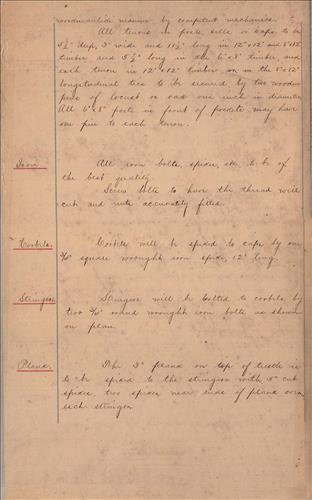 workmanlike manner by competent mechanics.
All tenons in posts, sills or caps to be
5½" deep, 3" wide and 11½" long in 12"x12" and 8"x12"
timber and 5½" long in the 6"x8" timber, and
each tenon in 12"x12" timber or in the 8"x12"
longitudinal ties to be secured by two wooden
pins of locust or oak one inch in diameter
All 6"x8" posts in front of may have
one pin to each tenon.
Iron. All iron bolts, spikes, etc. to be of
the best quality.
Screw bolts to have the thread well
cut and nuts accurately fitted.
Corbels. Corbels will be spiked to caps by one
square wrought iron spike, 12" long.
Stringers Stringers will be bolted to corbels by
two round wrought iron bolts as shown
on plan.
Plank. The 3" plank on top of trestle is
to be spiked to the stringers with cut
spikes, two spikes near ends of plank over
each stringer.